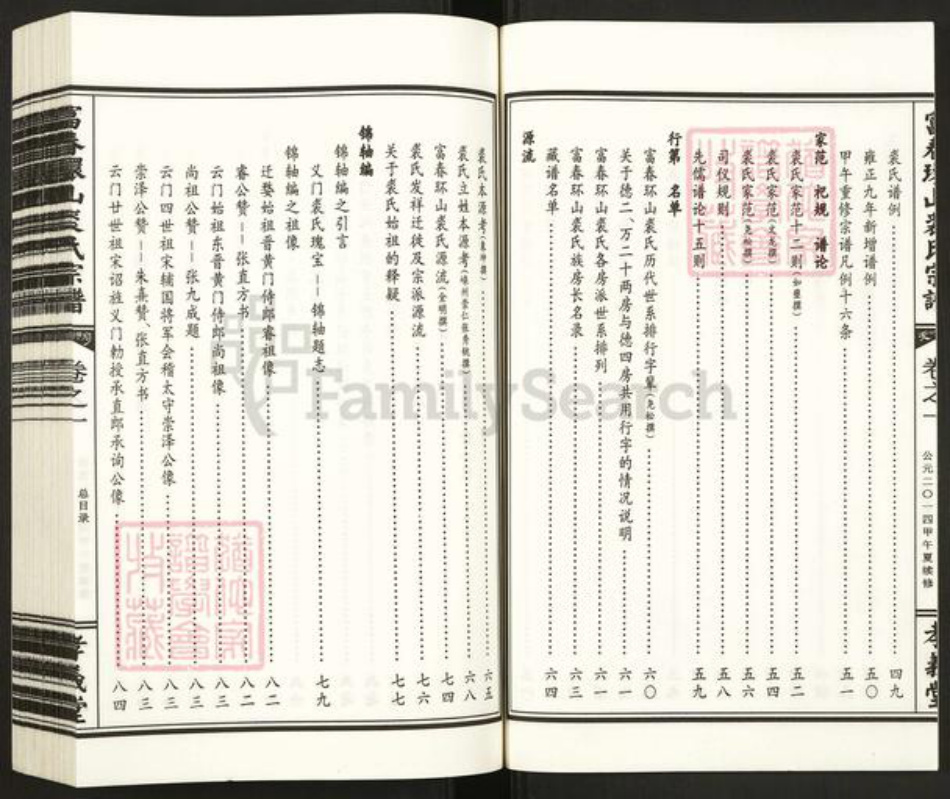 富春环山裘氏宗谱
卷之一
公元二〇一四甲午夏续修
孝义堂
裘氏谱例 四九
雍正九年新增谱例 五〇
甲午重修宗谱凡例十六条 五一
家范 祀规 谱论
裘氏家范十二则 五二
裘氏家范(文龙撰) 五四
裘氏家范(尧松撰) 五六
司仪规则 五八
先儒谱论十五则 五九
行第 名单
富春环山裘氏历代世系排行字辈(尧松撰) 六〇
关于德二、万二十两房与德四房共用行字的情况说明 六一
富春环山裘氏各房派世系排列 六一
富春环山裘氏族房长名录 六三
藏谱名单 六四
源流
裘氏本源考 六五
裘氏立姓本源考(嵊州崇仁张秀铫撰) 六八
富春环山裘氏源流(金明撰) 七四
裘氏发祥迁徙及宗派源流 七六
关于裘氏始祖的释疑 七七
锦轴编
锦轴编之引言
义门裘氏瑰宝——锦轴题志 七九
锦轴编之祖像
迁婺始祖晋黄门侍郎睿祖像 八二
睿公赞——张直方书 八二
云门始祖东晋黄门侍郎尚祖像 八三
尚祖公赞——张九成题 八三
云门四世祖宋辅国将军会稽太守崇泽公像 八三
崇泽公赞——朱熹赞、张直方书 八三
云门廿世祖宋诏旌义门勅授承直郎承询公像 八四
富春环山裘氏宗谱
卷之一
总目录
孝义堂
FamilySearch